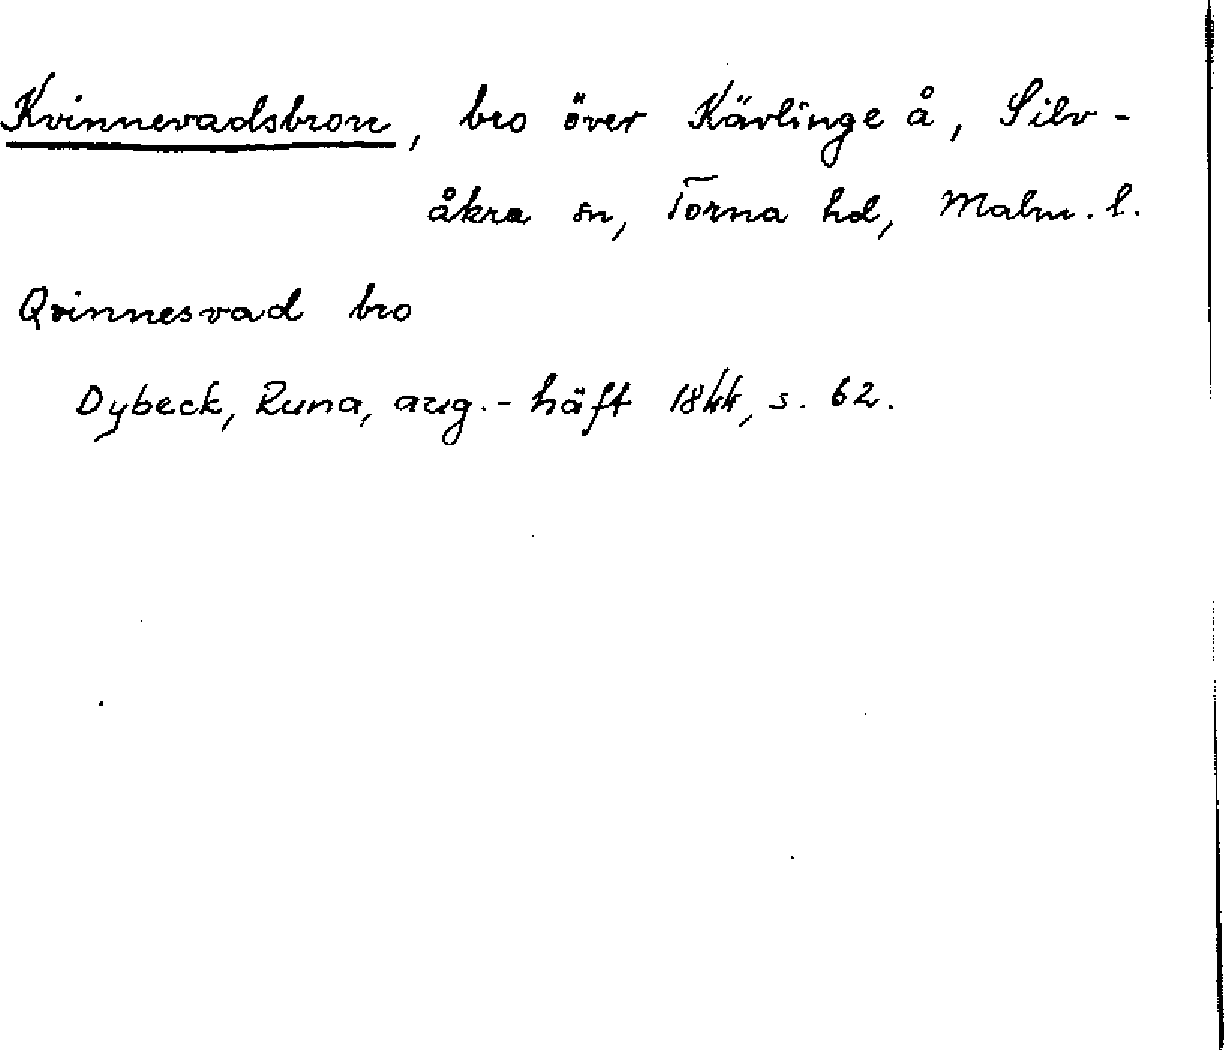 Kvinnevadsbron, bro över Kävlinge å, Silv-
åkra sn, Torna hd, Malm. l.
Qvinnesvad bro
Dybeck, Runa, aug.- häft 1844, s. 62.